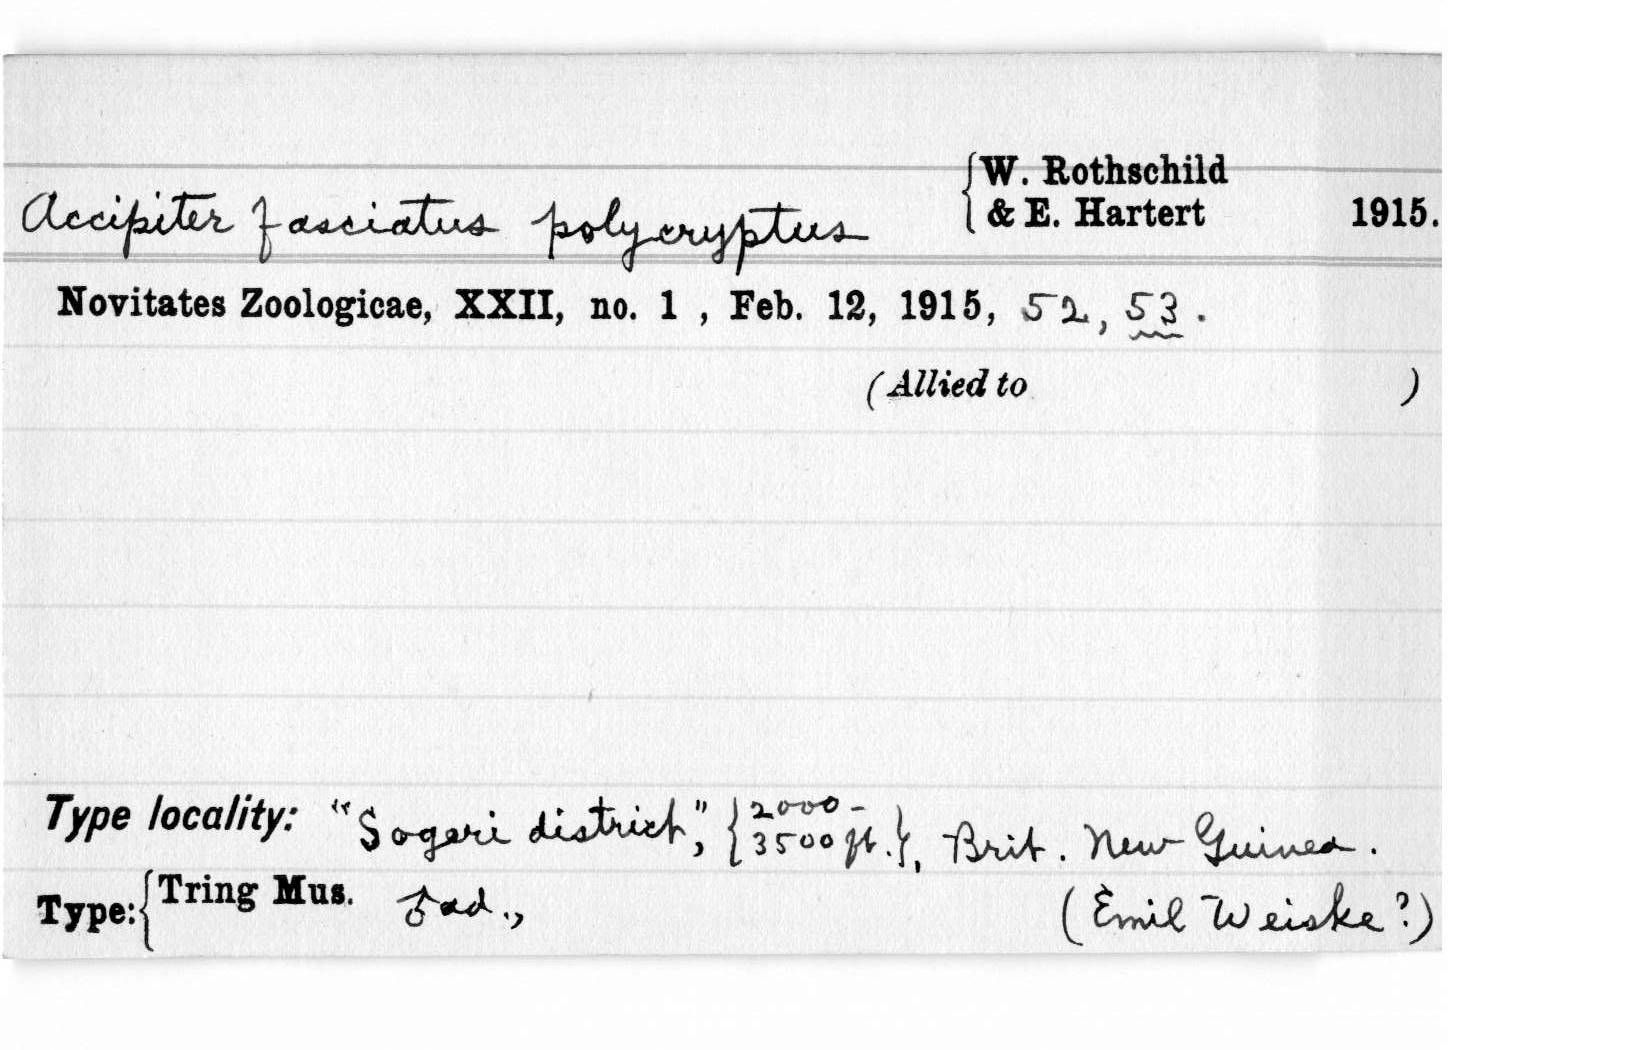 {W. Rothschild
Accipiter fasciatus polycryptus & E. Hartert 1915.
Novitates Zoologicae, XXII, no. 1 , Feb. 12, 1915, 52, 53.
(Allied to )
Type locality: "Sogeri district", {2000-3500 ft.}, Brit. New Guinea.
Type: {Tring Mus. ♂ ad., (Emil Weiske?)